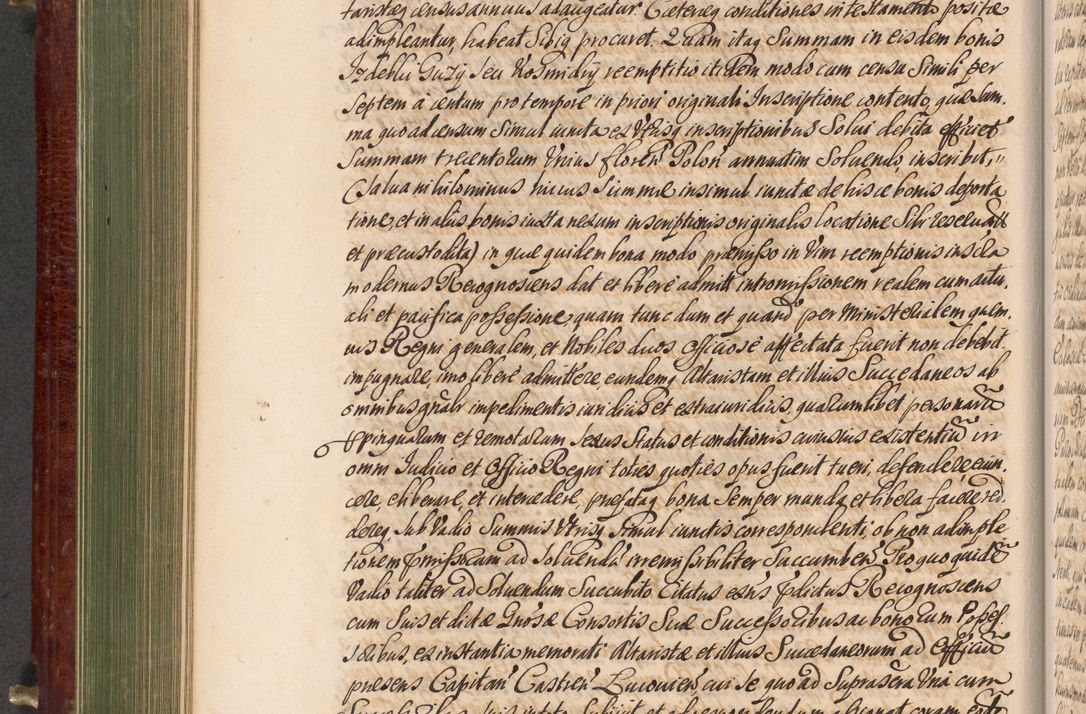 taristæq census annuus adaugeatur. Cæteræq conditiones in testamento positæ
adimpleantur, habeat Sibiq procuret. Quam itaq Summam in eisdem bonis
Izdebki Guzy Seu Kosmidry reemptitio itidem modo cum censu Simili per
Septem à centum pro tempore in priori originali Inscriptione contento, quæ Sum-
ma quo ad censum Simul iuncta ex Utrisq inscriptionibus Solui debita efficiet
Summam trecentorum Unius floren Polon annuatim Soluendo, inscribit,
(Salua nihilominus huius Summæ insimul iunctæ de hisce bonis deporta
tione, et in aliis bonis iuxta nexum inscriptionis originalis locatione Sibi reseruata
et præcustodita) in quæ quidem bona modo præmisso in Vim reemptionis inscta
modernus Recognoscens dat et liberè admitt intromissionem realem cum actu-
ali et pacifica possessione, quam tunc dum et quand per Ministerialem quem-
uis Regni generalem, et Nobiles duos officiosè affectata fuerit non debebit
impugnare, imo liberè admittere, eundemq Altaristam et illius Succedaneos ab
omnibus gnalr impedimentis iuridicis et extraiuridicis, quarumlibet personarũ
Ppinquarum et remotarum Sexus Status et conditionis cuiusuis existentiũ in
omni Iudicio et Officio Regni toties quoties opus fuerit tueri, defendere, euin-
cere, eliberare, et intercedere, præfataq bona Semper munda et libera facere red-
dereq, Sub Vadio Summis Utrisq Simul iunctis correspondenti, ob non adimple
tionem pmissorum ad Soluend irremissibiliter Succumben. Pro quo quidẽ
Vadio taliter ad Soluendum Succubito Citatus exns pdictus Recognoscens
cum Suis et dictæ Gnosæ Consortis Suæ Successoribus ac bonorum Posses-
soribus, ex instantia memorati Altaristæ et illius Succedaneorum ad Officiũ
præsens Capitan Castren Lucouien, cui Se quo ad Suprascra Una cum